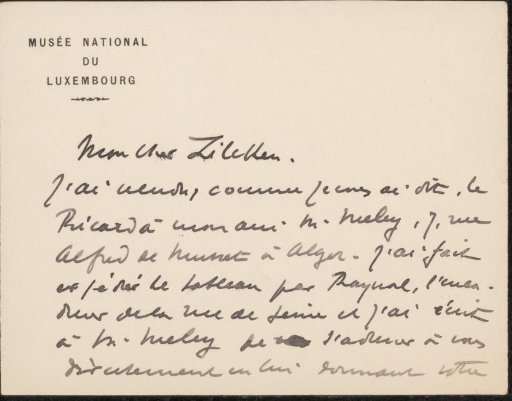 MUSÉE NATIONAL
DU
LUXEMBOURG
Mon cher Zilcken.
J'ai vendu, comme je vous ai dit, le
Ricard à mon ami M. Meley, 7, rue
Alfred de Musset à Alger. J'ai fait
expédier le tableau par Raynal, l'enca-
dreur de la rue de Seine et j'ai écrit
à M. Meley de s'adresser à vous
directement en lui donnant votre